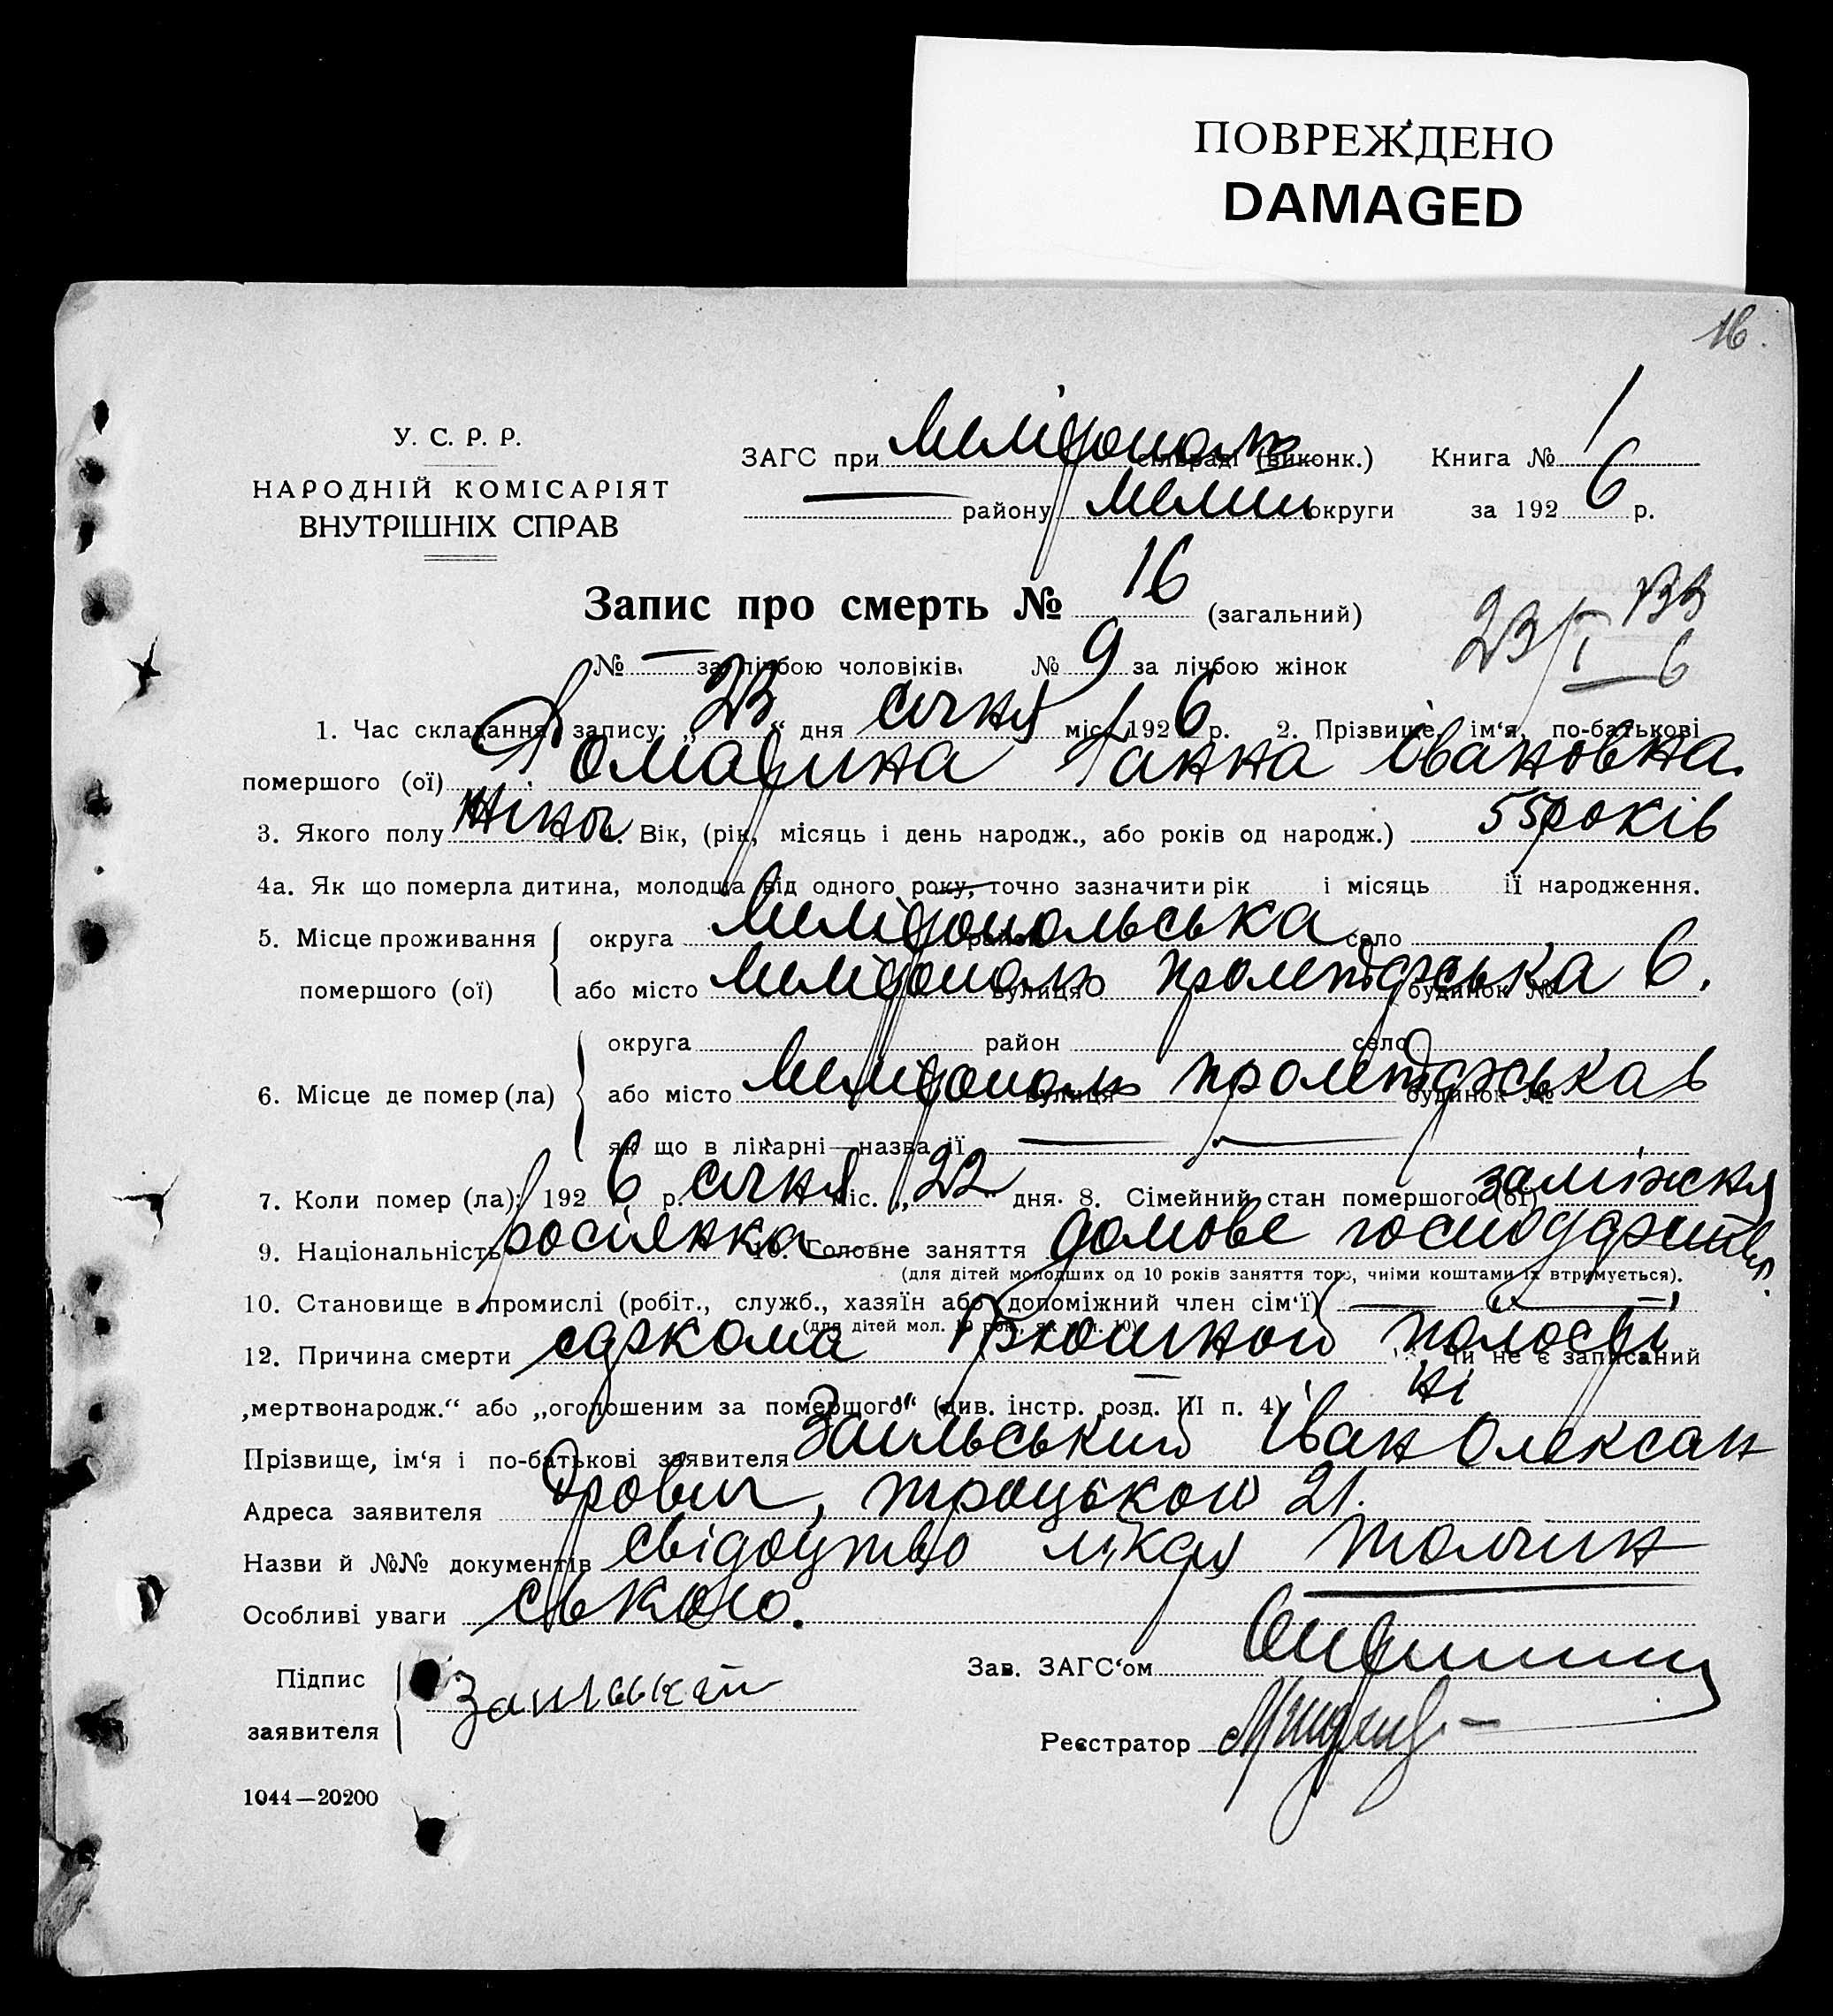 ПОВРЕЖДЕНО
DAMAGED
16.
У. С. Р. Р.
НАРОДНІЙ КОМІСАРІЯТ
ВНУТРІШНІХ СПРАВ
ЗАГС при Мелітополь сільраді (виконк.) Книга № 1
— району Мелит округи за 192 6 р.
Запис про смерть № 16 (загальний)
№ — за лічбою чоловіків. № 9 за лічбою жінок
23/I 6
1. Час складання запису: „ 23 “ дня січня міс. 192 6 р. 2. Прізвище, ім‘я, по-батькові
помершого (ої) Ганна Івановна.
3. Якого полу жіноч. Вік, (рік, місяць і день народж., або років од народж.) 55 років
4а. Як що померла дитина, молодша від одного року, точно зазначити рік і місяць її народження.
5. Місце проживання округа Мелітопольська район село
помершого (ої) або місто Мелітополь вулиця пролетарська будинок № 6.
округа район село
6. Місце де помер (ла) або місто Мелітополь вулиця пролетарська будинок № 6
як що в лікарні—назва її —
7. Коли помер (ла): 192 6 р. січня міс. „ 22 “ дня. 8. Сімейний стан помершого (ої) заміжня
9. Національність росіянка 10. Головне заняття домове господарство
(для дітей молодших од 10 років заняття того, чиїми коштами їх втримується).
10. Становище в промислі (робіт., служб., хазяїн або допоміжний член сім‘ї) —
(для дітей мол. 10 рок., як у п. 10)
12. Причина смерти саркома брюшной полости Чи не є записаний
„мертвонародж.“ або „оголошеним за померщого“ (див. інстр. розд. III п. 4) ні
Прізвище, ім‘я і по-батькові заявителя Іван Олександ
Адреса заявителя рович, троцького 21.
Назви й №№ документів свідоцтво лікаря Толчин
Особливі уваги ського.
Підпис
заявителя
Зав. ЗАГС‘ом
Реєстратор
1044—20200